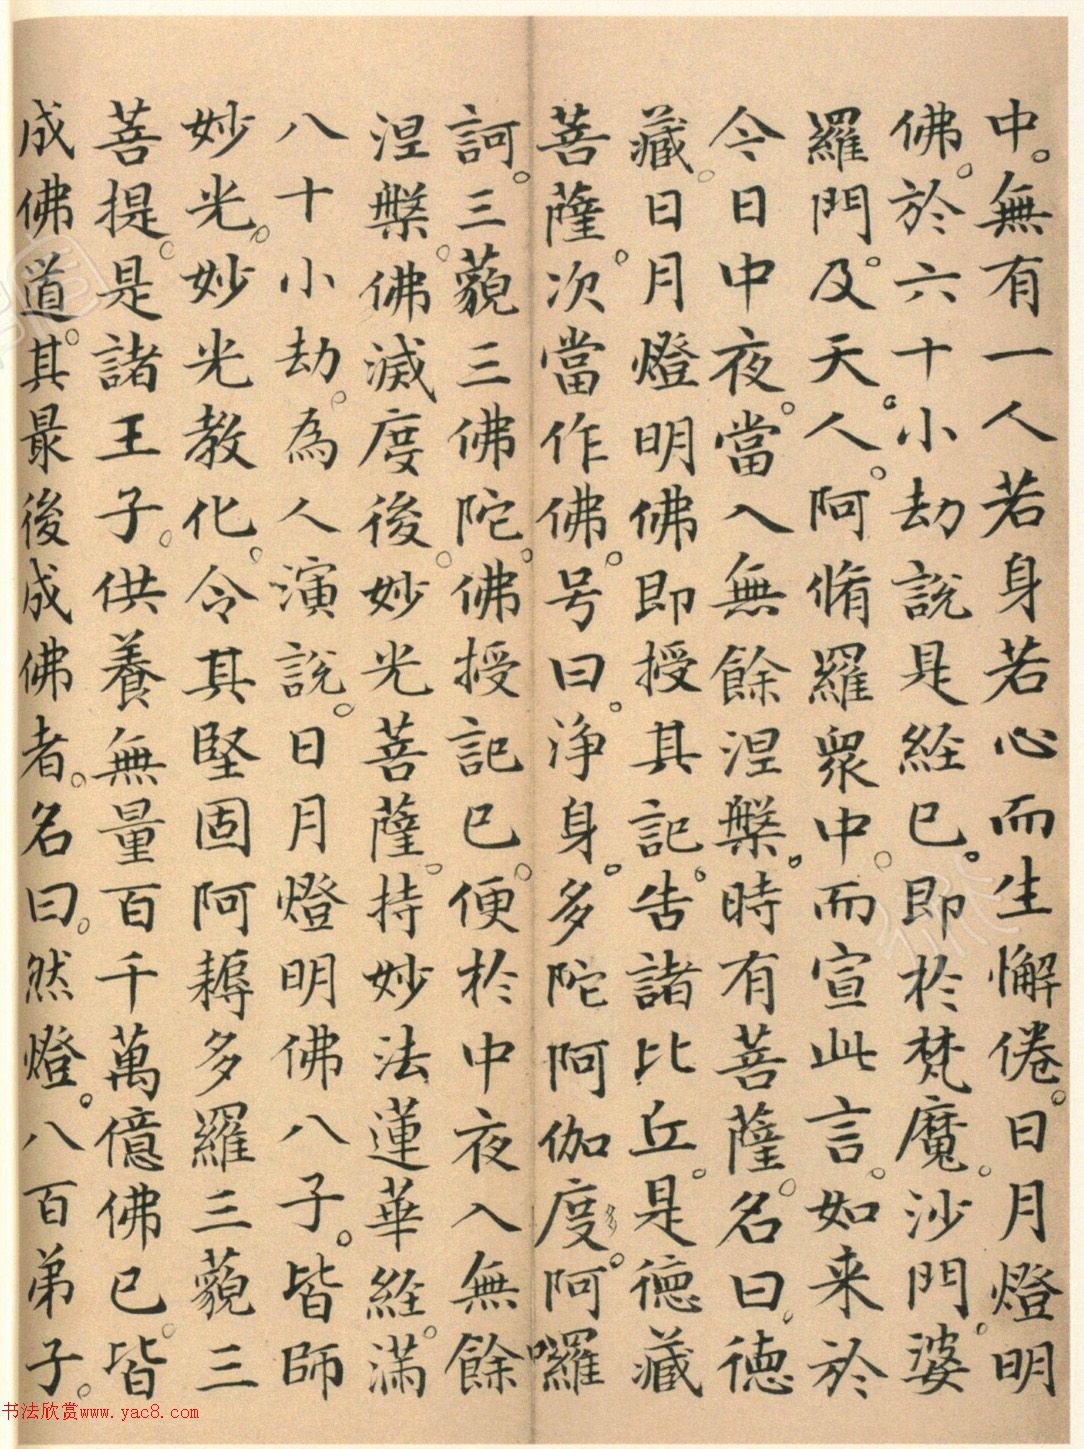 中。無有一人若身若心而生懈倦。日月燈明
佛。於六十小劫說是経已。即於梵魔。沙門。婆
羅門。及天。人。阿脩羅衆中。而宣此言。如来於
今日中夜。當入無餘涅槃。時有菩薩。名曰。徳
藏。日月燈明佛即授其記。告諸比丘。是徳藏
菩薩。次當作佛。号曰。浄身。多陀阿伽度。阿囉
訶。三藐三佛陀。佛授記已。便於中夜入無餘
涅槃。佛滅度後。妙光菩薩。持妙法蓮華経。滿
八十小劫。為人演說。日月燈明佛八子。皆師
妙光。妙光教化。令其堅固阿耨多羅三藐三
菩提。是諸王子。供養無量百千萬億佛已。皆
成佛道。其最後成佛者。名曰。然燈。八百弟子。
书法欣赏www.yac8.com